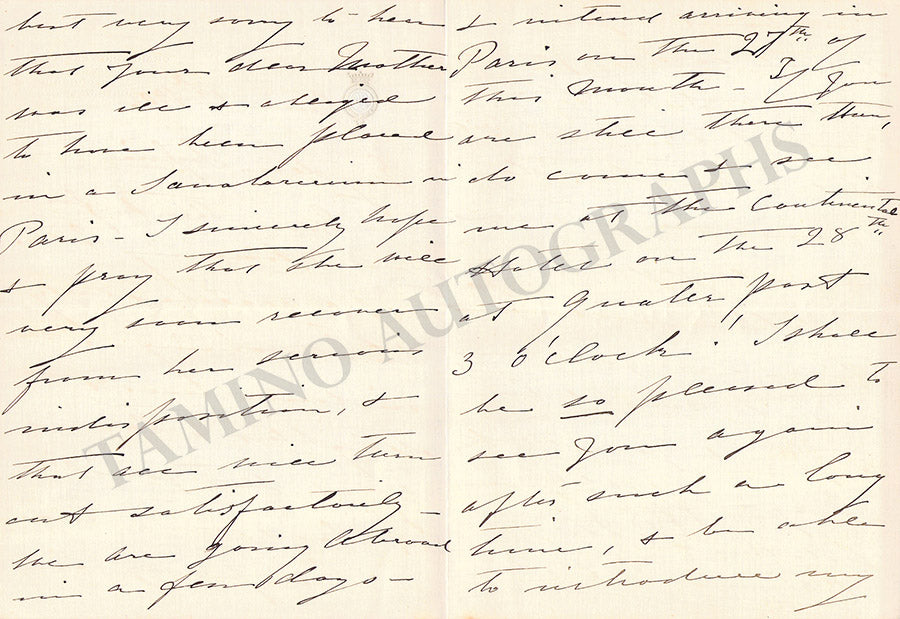 but very sorry to hear
that your dear Mother
was ill & obliged
to have been placed
in a Sanatorium in
Paris - I sincerely hope
& pray that she will
very soon recover
from her serious
indisposition, &
that all will turn
out satisfactorily -
We are going Abroad
in a few days -
& intend arriving in
Paris on the 27th of
this Month - If you
are still there then,
do come & see
me at the Continental
Hotel on the 28th
at quater past
3 o'clock! I shall
be so pleased to
see you again
after such a long
time, & be able
to introduce my
TAMINO AUTOGRAPHS